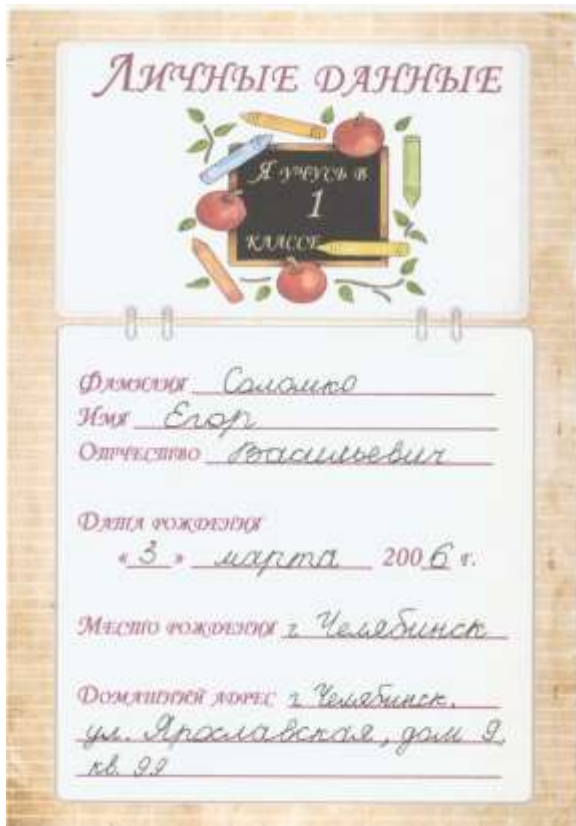 Личные данные
Я учусь в
1
классе
Фамилия Соломко
Имя Егор
Отчество Васильевич
Дата рождения
« 3 » марта 2006 г.
Место рождения г Челябинск
Домашний адрес г Челябинск.
ул. Ярославская, дом 9,
кв. 99